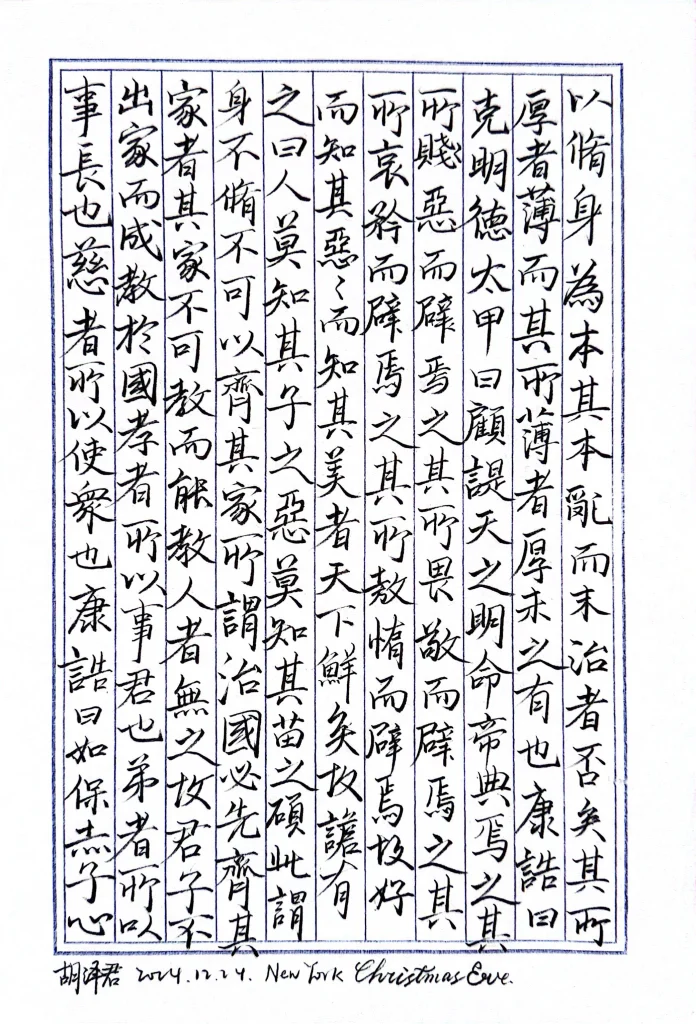 以脩身為本其本亂而末治者否矣其所
厚者薄而其所薄者厚未之有也康誥曰
克明德太甲曰顧諟天之明命帝典焉之其
所賤惡而辟焉之其所畏敬而辟焉之其
所哀矜而辟焉之其所敖惰而辟焉故好
而知其惡〻而知其美者天下鮮矣故諺有
之曰人莫知其子之惡莫知其苗之碩此謂
身不脩不可以齊其家所謂治國必先齊其
家者其家不可教而能教人者無之故君子不
出家而成教於國孝者所以事君也弟者所以
事長也慈者所以使衆也康誥曰如保赤子心
胡泽君 2024.12.24. New York Christmas Eve.